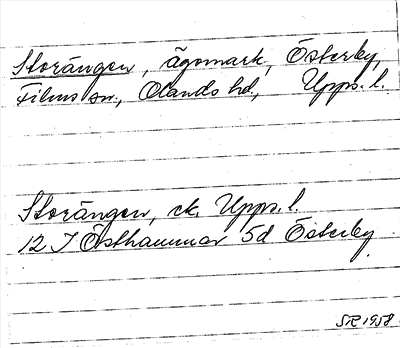 Storängen, ägomark, Österby,
Films sn., Olands hd., Upps. l.
Storängen, ek. Upps. l.
12 I Östhammar 5d Österby
SR 1958